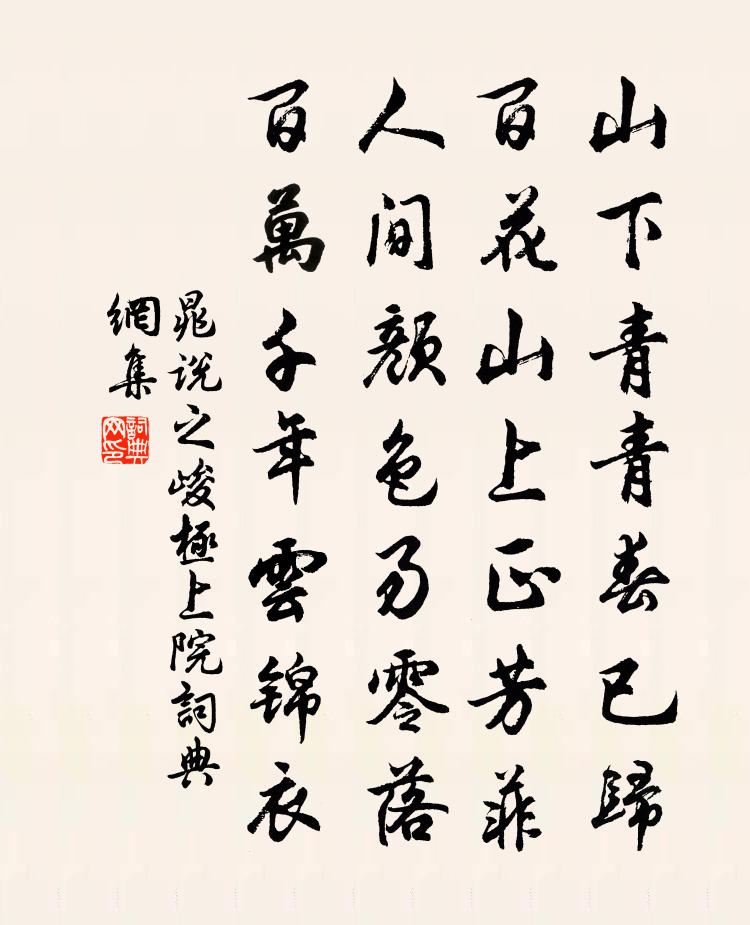 山下青青春已歸
百花山上正芳菲
人间顏色易零落
百萬千年雲錦衣
晁说之峻極上院詞典
網集
詞典
网印